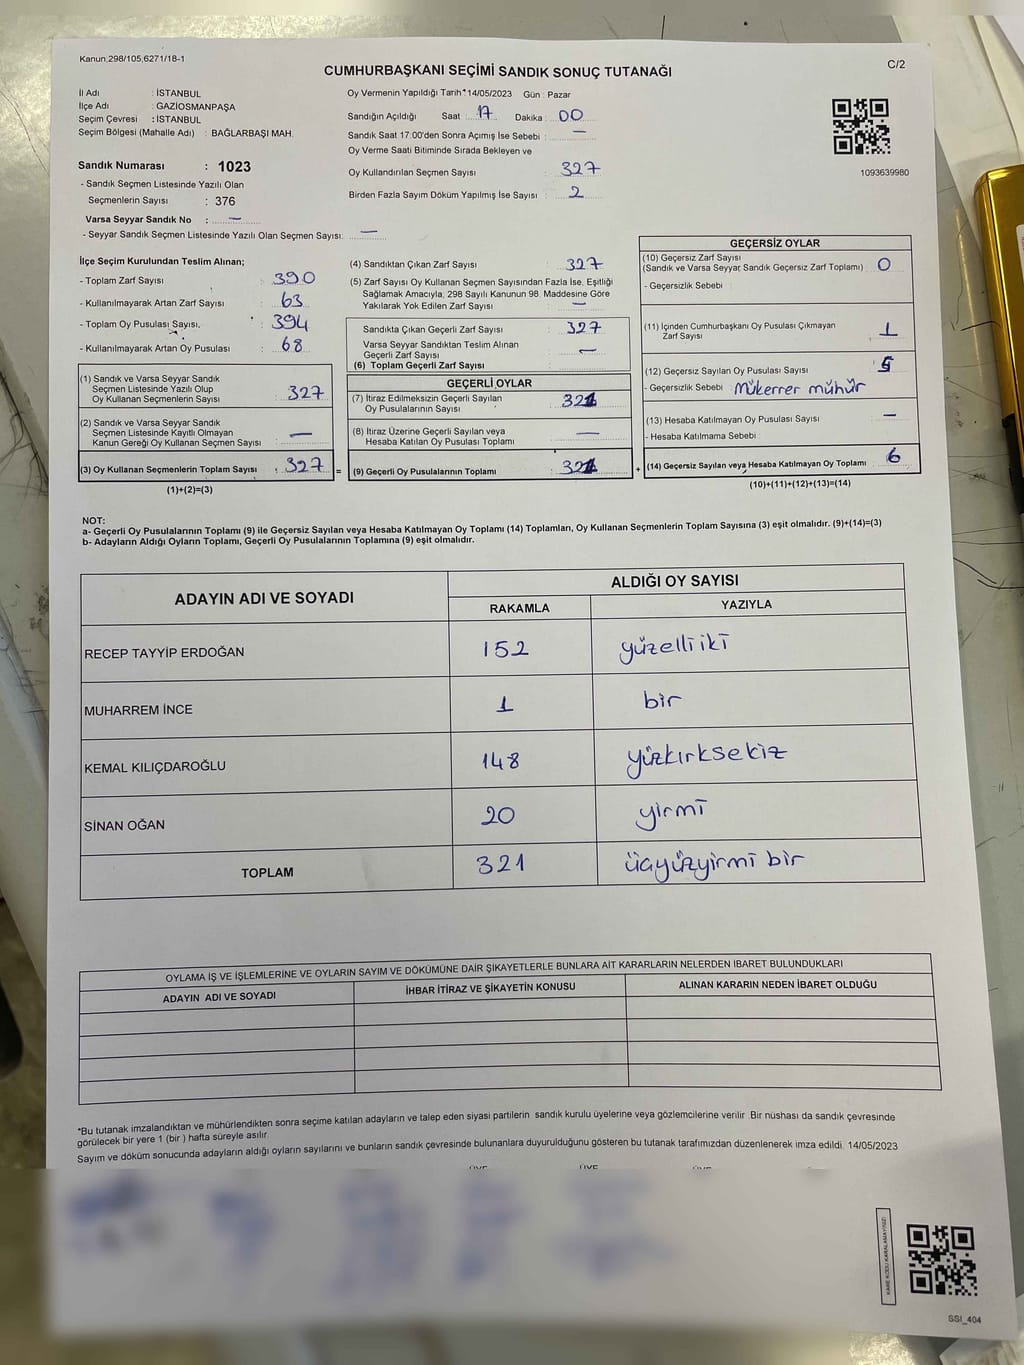 Kanun,298/105,6271/18-1
C/2
CUMHURBAŞKANI SEÇİMİ SANDIK SONUÇ TUTANAĞI
İl Adı : İSTANBUL
İlçe Adı : GAZİOSMANPAŞA
Seçim Çevresi : İSTANBUL
Seçim Bölgesi (Mahalle Adı) : BAĞLARBAŞI MAH.
Sandık Numarası : 1023
- Sandık Seçmen Listesinde Yazılı Olan
Seçmenlerin Sayısı : 376
Varsa Seyyar Sandık No : —
- Seyyar Sandık Seçmen Listesinde Yazılı Olan Seçmen Sayısı: —
Oy Vermenin Yapıldığı Tarih 14/05/2023 Gün : Pazar
Sandığın Açıldığı Saat : 17 Dakika : 00
Sandık Saat 17:00'den Sonra Açımış İse Sebebi : —
Oy Verme Saati Bitiminde Sırada Bekleyen ve
Oy Kullandırılan Seçmen Sayısı : 327
Birden Fazla Sayım Döküm Yapılmış İse Sayısı : 2
1093639980
İlçe Seçim Kurulundan Teslim Alınan;
- Toplam Zarf Sayısı : 390
- Kullanılmayarak Artan Zarf Sayısı : 63
- Toplam Oy Pusulası Sayısı, : 394
- Kullanılmayarak Artan Oy Pusulası : 68
(1) Sandık ve Varsa Seyyar Sandık
Seçmen Listesinde Yazılı Olup
Oy Kullanan Seçmenlerin Sayısı : 327
(2) Sandık ve Varsa Seyyar Sandık
Seçmen Listesinde Kayıtlı Olmayan
Kanun Gereği Oy Kullanan Seçmen Sayısı : —
(3) Oy Kullanan Seçmenlerin Toplam Sayısı : 327 =
(1)+(2)=(3)
(4) Sandıktan Çıkan Zarf Sayısı : 327
(5) Zarf Sayısı Oy Kullanan Seçmen Sayısından Fazla İse, Eşitliği
Sağlamak Amacıyla, 298 Sayılı Kanunun 98. Maddesine Göre
Yakılarak Yok Edilen Zarf Sayısı : —
Sandıkta Çıkan Geçerli Zarf Sayısı : 327
Varsa Seyyar Sandıktan Teslim Alınan
Geçerli Zarf Sayısı : —
(6) Toplam Geçerli Zarf Sayısı
GEÇERLİ OYLAR
(7) İtiraz Edilmeksizin Geçerli Sayılan
Oy Pusulalarının Sayısı : 321
(8) İtiraz Üzerine Geçerli Sayılan veya
Hesaba Katılan Oy Pusulası Toplamı : —
(9) Geçerli Oy Pusulalarının Toplamı : 321 +
GEÇERSİZ OYLAR
(10) Geçersiz Zarf Sayısı
(Sandık ve Varsa Seyyar Sandık Geçersiz Zarf Toplamı) : 0
- Geçersizlik Sebebi :
(11) İçinden Cumhurbaşkanı Oy Pusulası Çıkmayan
Zarf Sayısı : 1
(12) Geçersiz Sayılan Oy Pusulası Sayısı : 5
- Geçersizlik Sebebi : Mükerrer mühür
(13) Hesaba Katılmayan Oy Pusulası Sayısı : —
- Hesaba Katılmama Sebebi :
(14) Geçersiz Sayılan veya Hesaba Katılmayan Oy Toplamı : 6
(10)+(11)+(12)+(13)=(14)
NOT:
a- Geçerli Oy Pusulalarının Toplamı (9) ile Geçersiz Sayılan veya Hesaba Katılmayan Oy Toplamı (14) Toplamları, Oy Kullanan Seçmenlerin Toplam Sayısına (3) eşit olmalıdır. (9)+(14)=(3)
b- Adayların Aldığı Oyların Toplamı, Geçerli Oy Pusulalarının Toplamına (9) eşit olmalıdır.
ADAYIN ADI VE SOYADI
ALDIĞI OY SAYISI
RAKAMLA YAZIYLA
RECEP TAYYİP ERDOĞAN 152 yüzelliiki
MUHARREM İNCE 1 bir
KEMAL KILIÇDAROĞLU 148 yüzkırksekiz
SİNAN OĞAN 20 yirmi
TOPLAM 321 üçyüzyirmi bir
OYLAMA İŞ VE İŞLEMLERİNE VE OYLARIN SAYIM VE DÖKÜMÜNE DAİR ŞİKAYETLERLE BUNLARA AİT KARARLARIN NELERDEN İBARET BULUNDUKLARI
ADAYIN ADI VE SOYADI İHBAR İTİRAZ VE ŞİKAYETİN KONUSU ALINAN KARARIN NEDEN İBARET OLDUĞU
*Bu tutanak imzalandıktan ve mühürlendikten sonra seçime katılan adayların ve talep eden siyasi partilerin sandık kurulu üyelerine veya gözlemcilerine verilir Bir nüshası da sandık çevresinde
görülecek bir yere 1 (bir ) hafta süreyle asılır
Sayım ve döküm sonucunda adayların aldığı oyların sayılarını ve bunların sandık çevresinde bulunanlara duyurulduğunu gösteren bu tutanak tarafımızdan düzenlenerek imza edildi. 14/05/2023
KARE KODU KARALAMAYINIZ!
SSI_404